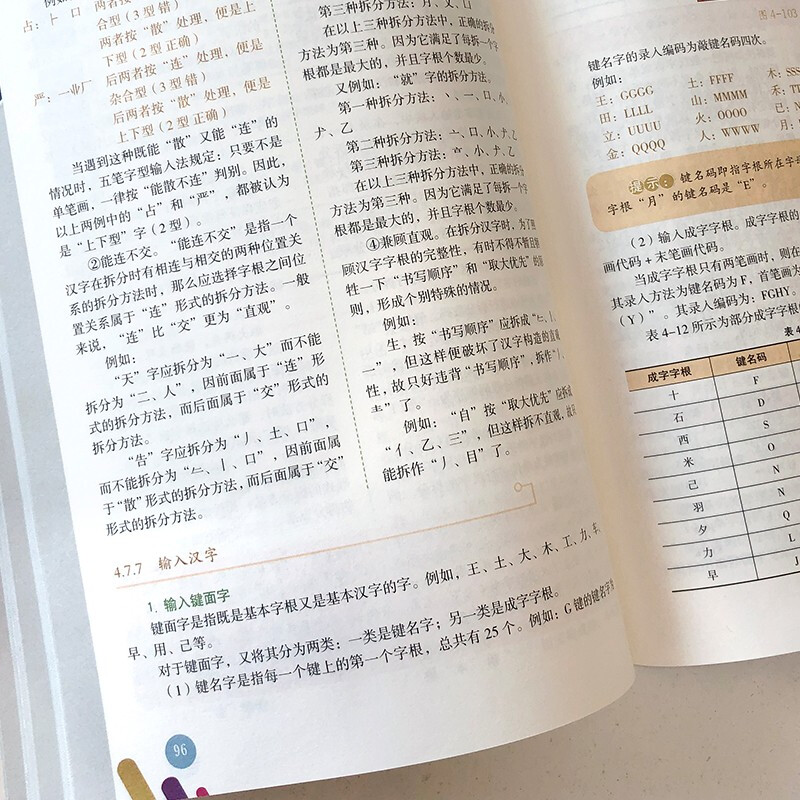 占：⺊ 口 两者按“散”处理，便是上
合型（3型错）
两者按“散”处理，便是上
下型（2型正确）
严：一业厂 后两者按“连”处理，便是
杂合型（3型错）
后两者按“散”处理，便是
上下型（2型正确）
当遇到这种既能“散”又能“连”的
情况时，五笔字型输入法规定：只要不是
单笔画，一律按“能散不连”判别。因此，
以上两例中的“占”和“严”，都被认为
是“上下型”字（2型）。
②能连不交。“能连不交”是指一个
汉字在拆分时有相连与相交的两种位置关
系的拆分方法时，那么应选择字根之间位
置关系属于“连”形式的拆分方法。一般
来说，“连”比“交”更为“直观”。
例如：
“天”字应拆分为“一、大”而不能
拆分为“二、人”，因前面属于“连”形
式的拆分方法，而后面属于“交”形式的
拆分方法。
“告”字应拆分为“丿、土、口”，
而不能拆分为“𠂉、丨、口”，因前面属
于“散”形式的拆分方法，而后面属于“交”
形式的拆分方法。
第三种拆分方法：月、又、口
在以上三种拆分方法中，正确的拆分
方法为第三种。因为它满足了每拆一个字
根都是最大的，并且字根个数最少。
又例如：“就”字的拆分方法。
第一种拆分方法：丶、一、口、小、
𠂇、乙
第二种拆分方法：亠、口、小、𠂇、乙
第三种拆分方法：、小、𠂇、乙
在以上三种拆分方法中，正确的拆分
方法为第三种。因为它满足了每拆一个字
根都是最大的，并且字根个数最少。
④兼顾直观。在拆分汉字时，为了照
顾汉字字根的完整性，有时不得不暂且牺
牲一下“书写顺序”和“取大优先”的原
则，形成个别特殊的情况。
例如：
生，按“书写顺序”应拆成“𠂉、丨、
一”，但这样便破坏了汉字构造的直观
性，故只好违背“书写顺序”，拆作“丿、
”了。
例如：“自”按“取大优先”应拆成
“亻、乙、三”，但这样拆不直观，故只
能拆作“丿、目”了。
4.7.7 输入汉字
1. 输入键面字
键面字是指既是基本字根又是基本汉字的字。例如，王、土、大、木、工、力、车、
早、用、己等。
对于键面字，又将其分为两类：一类是键名字；另一类是成字字根。
（1）键名字是指每一个键上的第一个字根，总共有25个。例如：G键的键名字为
96
图4-103
键名字的录入编码为敲键名码四次。
例如：
王：GGGG 土：FFFF 木：SSS
田：LLLL 山：MMMM 禾：
立：UUUU 火：OOOO 已：
金：QQQQ 人：WWWW 月：
提示：键名码即指字根所在字
字根“月”的键名码是“E”。
（2）输入成字字根。成字字根的
画代码+末笔画代码。
当成字字根只有两笔画时，则在
其录入方法为键名码为F，首笔画为
（Y）”。其录入编码为：FGHY。
表4-12所示为部分成字字根
表4
成字字根 键名码
十 F
石 D
西 S
米 O
己 N
羽 N
夕 Q
力 L
早 J